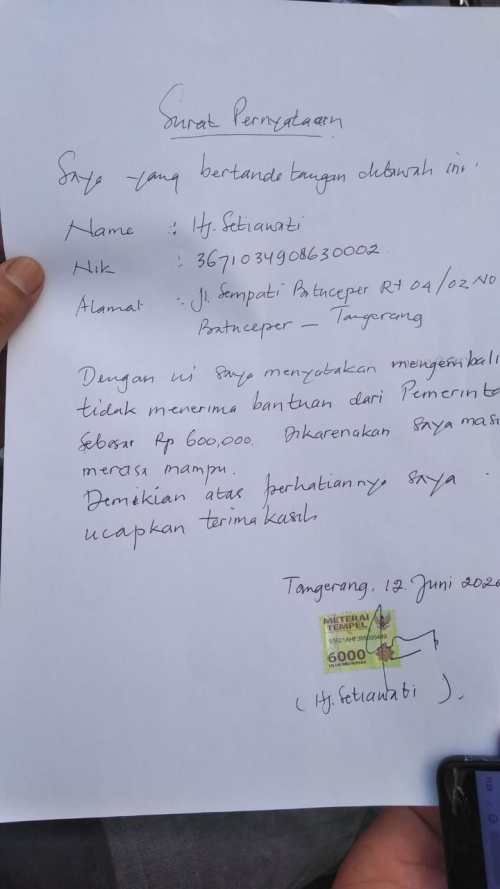 Surat Pernyataan
Saya yang bertanda tangan dibawah ini.
Name : Hj. Setiawati
Nik : 3671034908630002
Alamat : Jl. Sempati Batuceper Rt 04/02 No
Batuceper - Tangerang
Dengan ini saya menyatakan mengembali
tidak menerima bantuan dari Pemerinta
sebesar Rp 600,000. Dikarenakan saya masi
merasa mampu.
Demikian atas perhatiannya saya
ucapkan terima kasih
Tangerang, 12 Juni 2020
METERAI
TEMPEL
6000
(Hj. Setiawati).